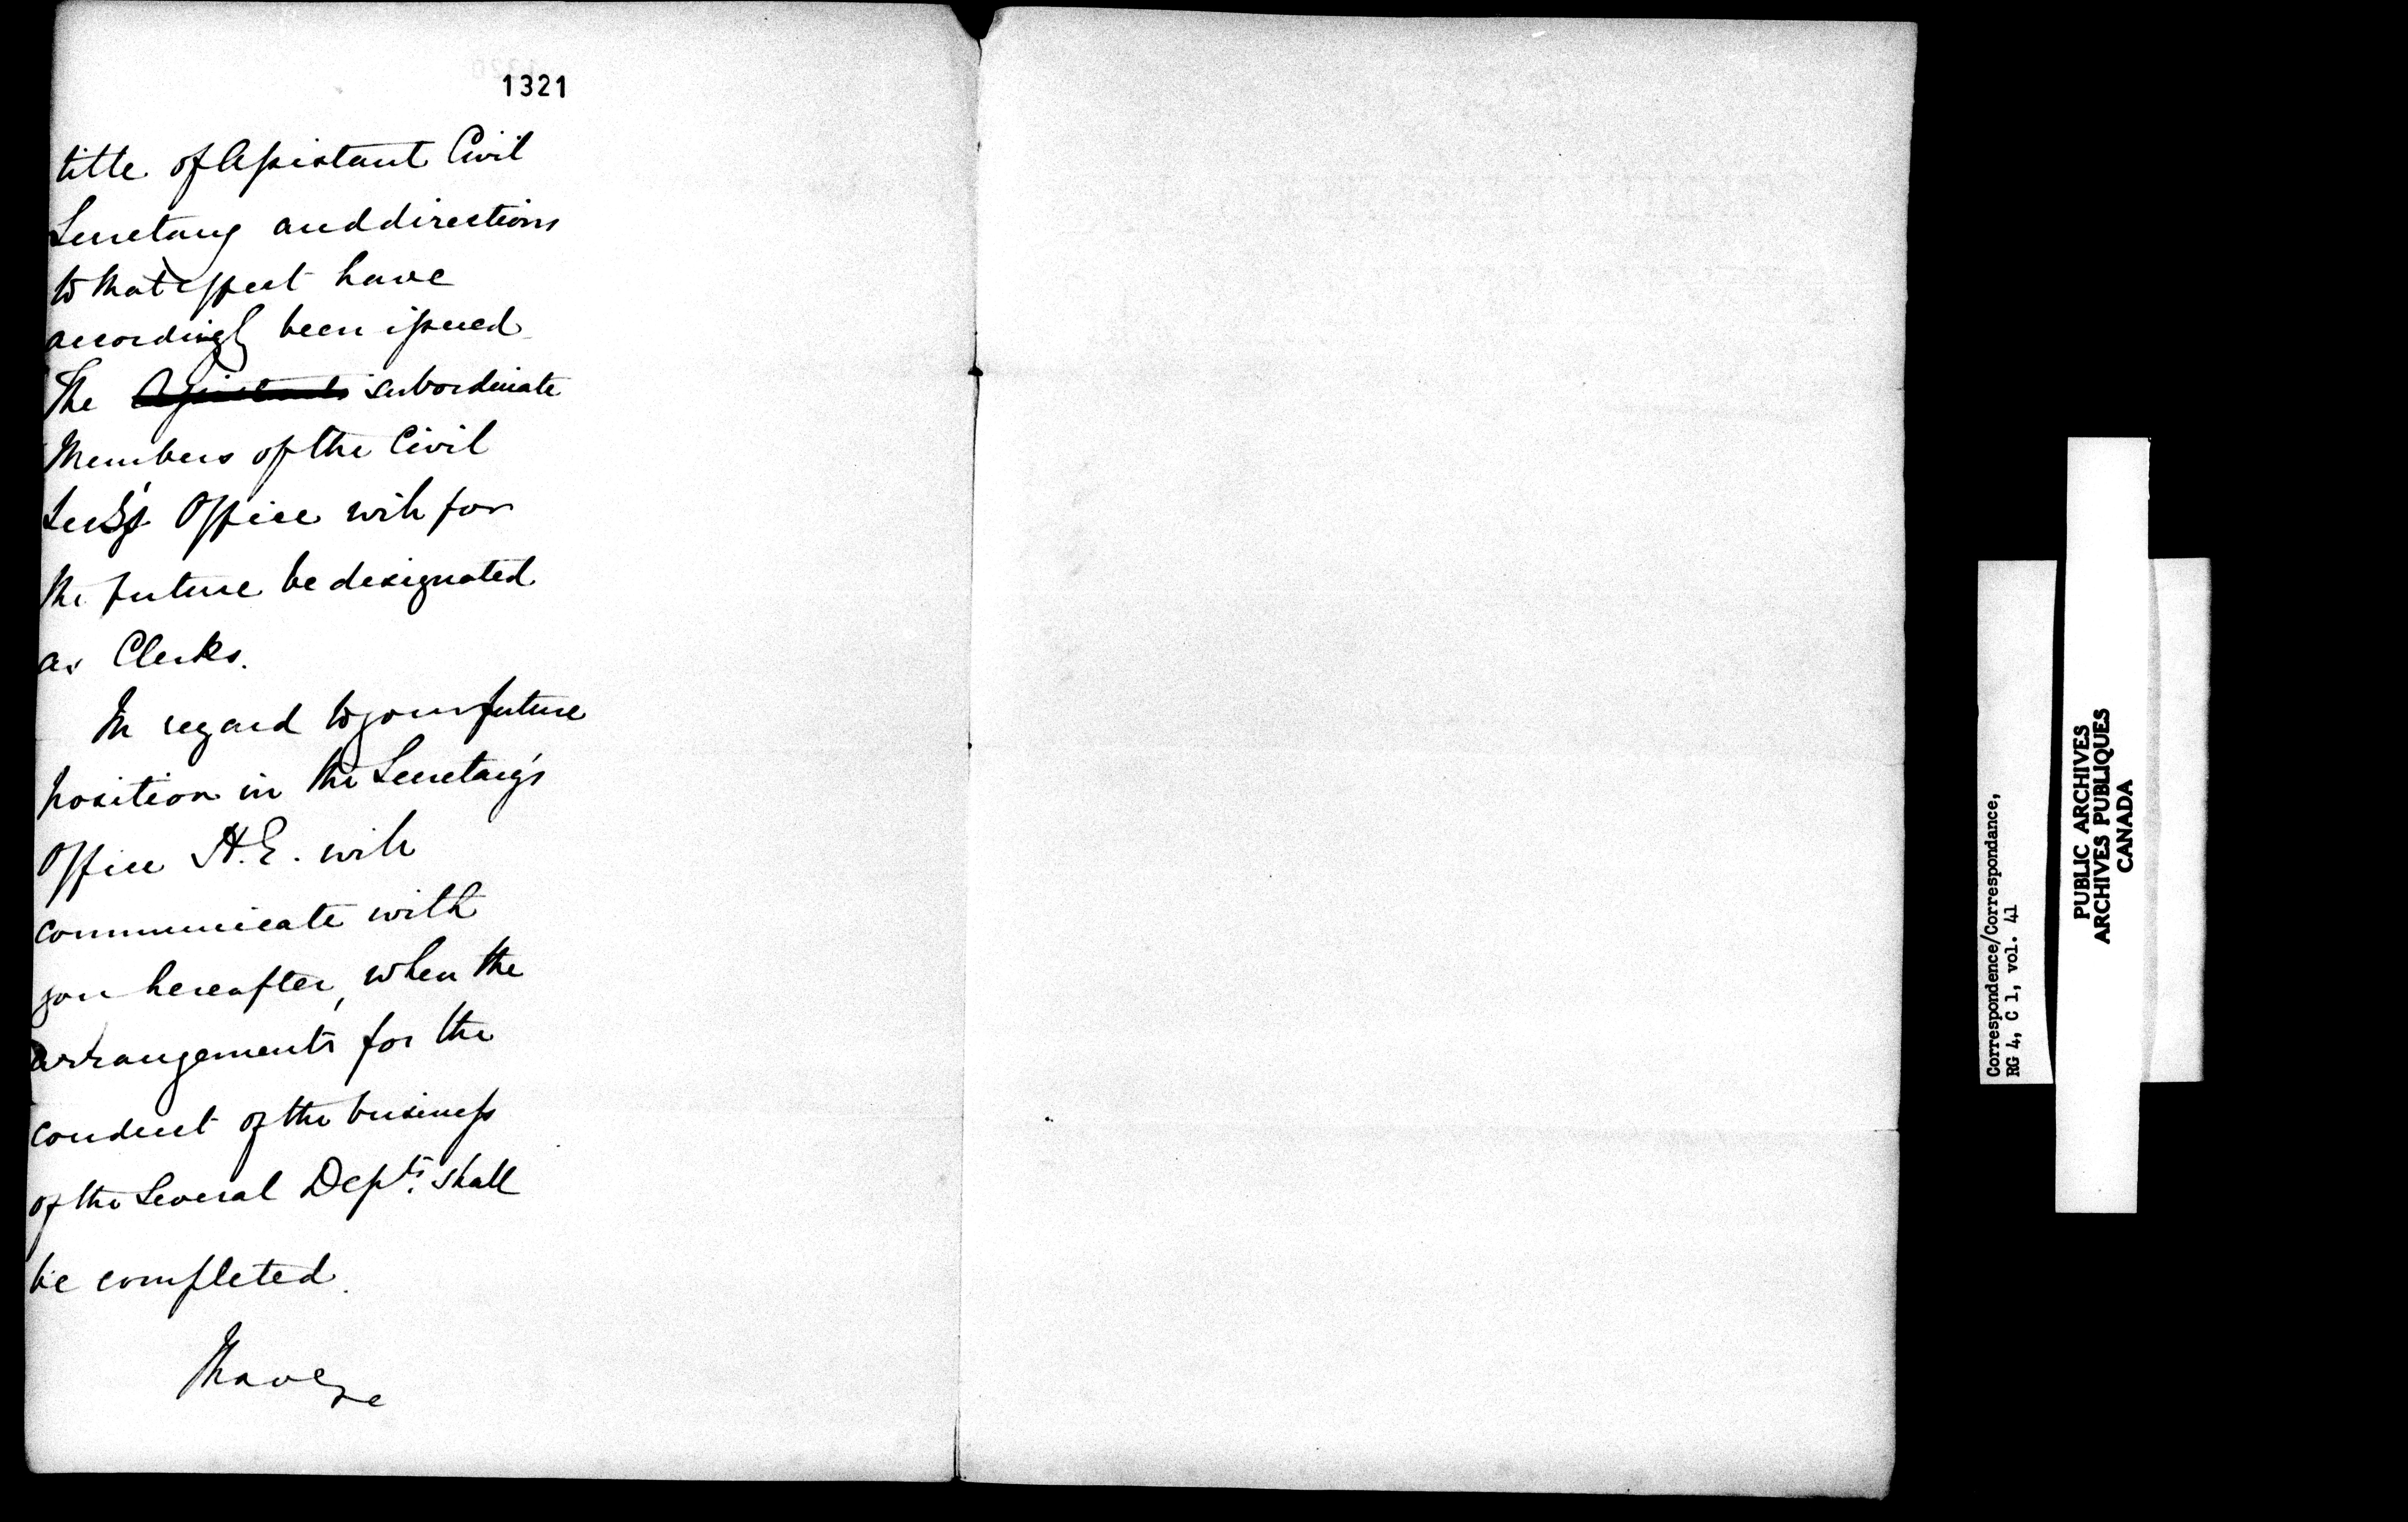 1321
title of Assistant Civil
Secretary and directions
to that effect have
accordingly been issued
The Assistants subordinate
Members of the Civil
Secy's Office will for
the future be designated
as Clerks.
In regard to your future
position in the Secretary's
Office H.E. will
communicate with
you hereafter, when the
arrangements for the
conduct of the business
of the Several Depts. shall
be completed.
I have &c
Correspondence/Correspondance,
RG 4, C 1, vol. 41
PUBLIC ARCHIVES
ARCHIVES PUBLIQUES
CANADA